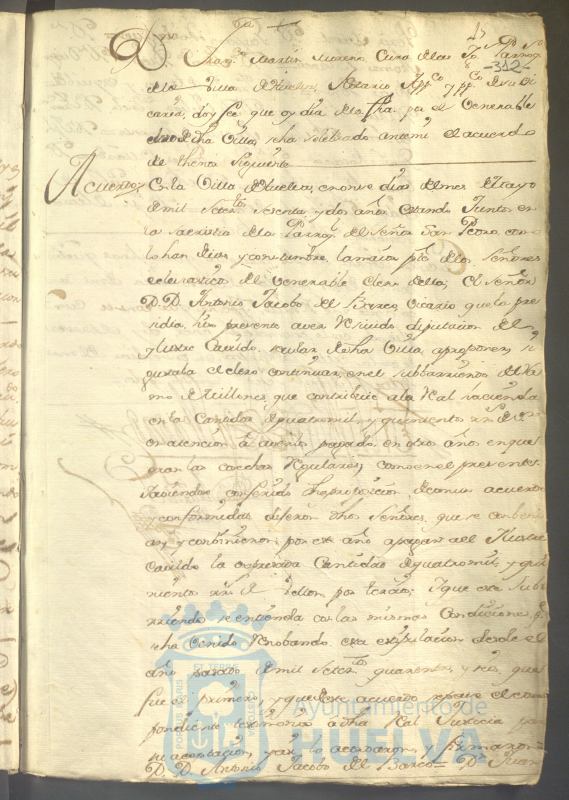 47
D.n Fran.co Martin Moreno, Cura de las Ig.s Parroq.s
312
de la Villa de Huelva, Notario App.co y pp.co de su Vi
caria, doy fee que oy dia de la fha. por el Venerable
clero de dha Villa, se ha celebrado ante mi el acuerdo
de thenor siguiente
Acuerdo
En la Villa de Huelva, en onse dias del mes de Mayo
de mil setec.tos sesenta y dos años estando Juntos en
la sacristia de la Parroq.l del Señor San Pedro, como
lo han de uso y constumbre, la maior p.te de los señores
eclesiasticos del Venerable clero de ella, el señor
D. D. Antonio Jacobo del Barco, Vicario que lo pre
sidia, hizo presente aver resevido diputacion del
Ylustre Cavildo secular de dha Villa, a proponer, si
gustaba el clero continuar, en el subbarriendo del Ra
mo de Millones, que contribuie a la Real hacienda
en la Cantidad de quatro mil, y quinientos rr.s de v.on
en atencion a averlo pagado, en otros años en que
eran las cosechas regulares, como en el presente.
Haviendose conferido dha proposicion de comun acuerdo
y conformidad dixeron dhos Señores, que se conbeni
an, y conbinieron, por este año apagar all Ilustre
Cavildo la expresada Cantidad de quatro mil, y qui
nientos rr.s de vellon por tercios; Y que este subb
arriendo se entienda con las mismas Condiciones, q.e
se ha venido renobando esta estipulacion desde el
año pasado de mil setec.tos quarenta, y seis, que
fue el primero, y que de este acuerdo se pase el corres
pondiente testimonio a dha Real Justicia para
su aceptacion, y asi lo acordaron, y firmaron=
D. D. Antonio Jacobo del Barco= D.n Juan
PORTUS MARIS
ET TERRE
Ayuntamiento de
HUELVA